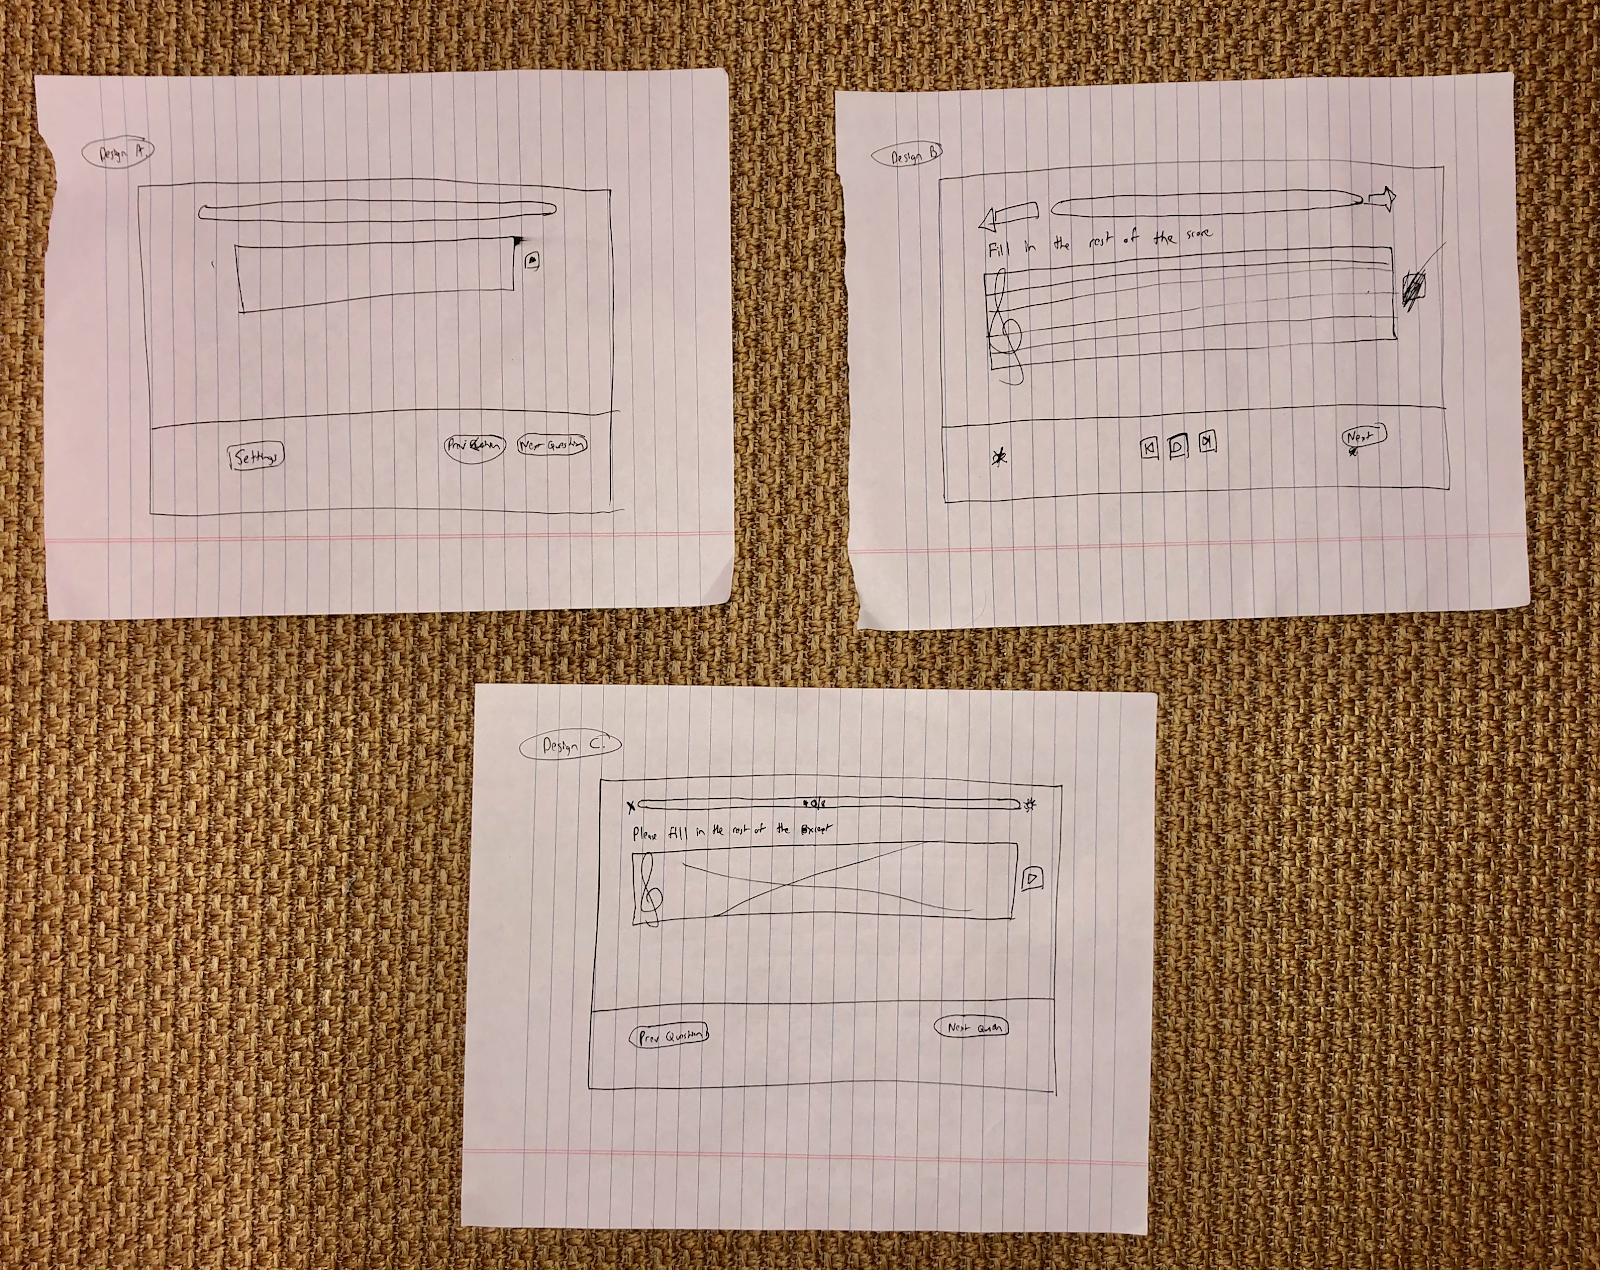 Design A
Settings
Prev Question
Next Question
Design B
Fill in the rest of the score
Next
Design C
Please fill in the rest of the
Prev Question
Next